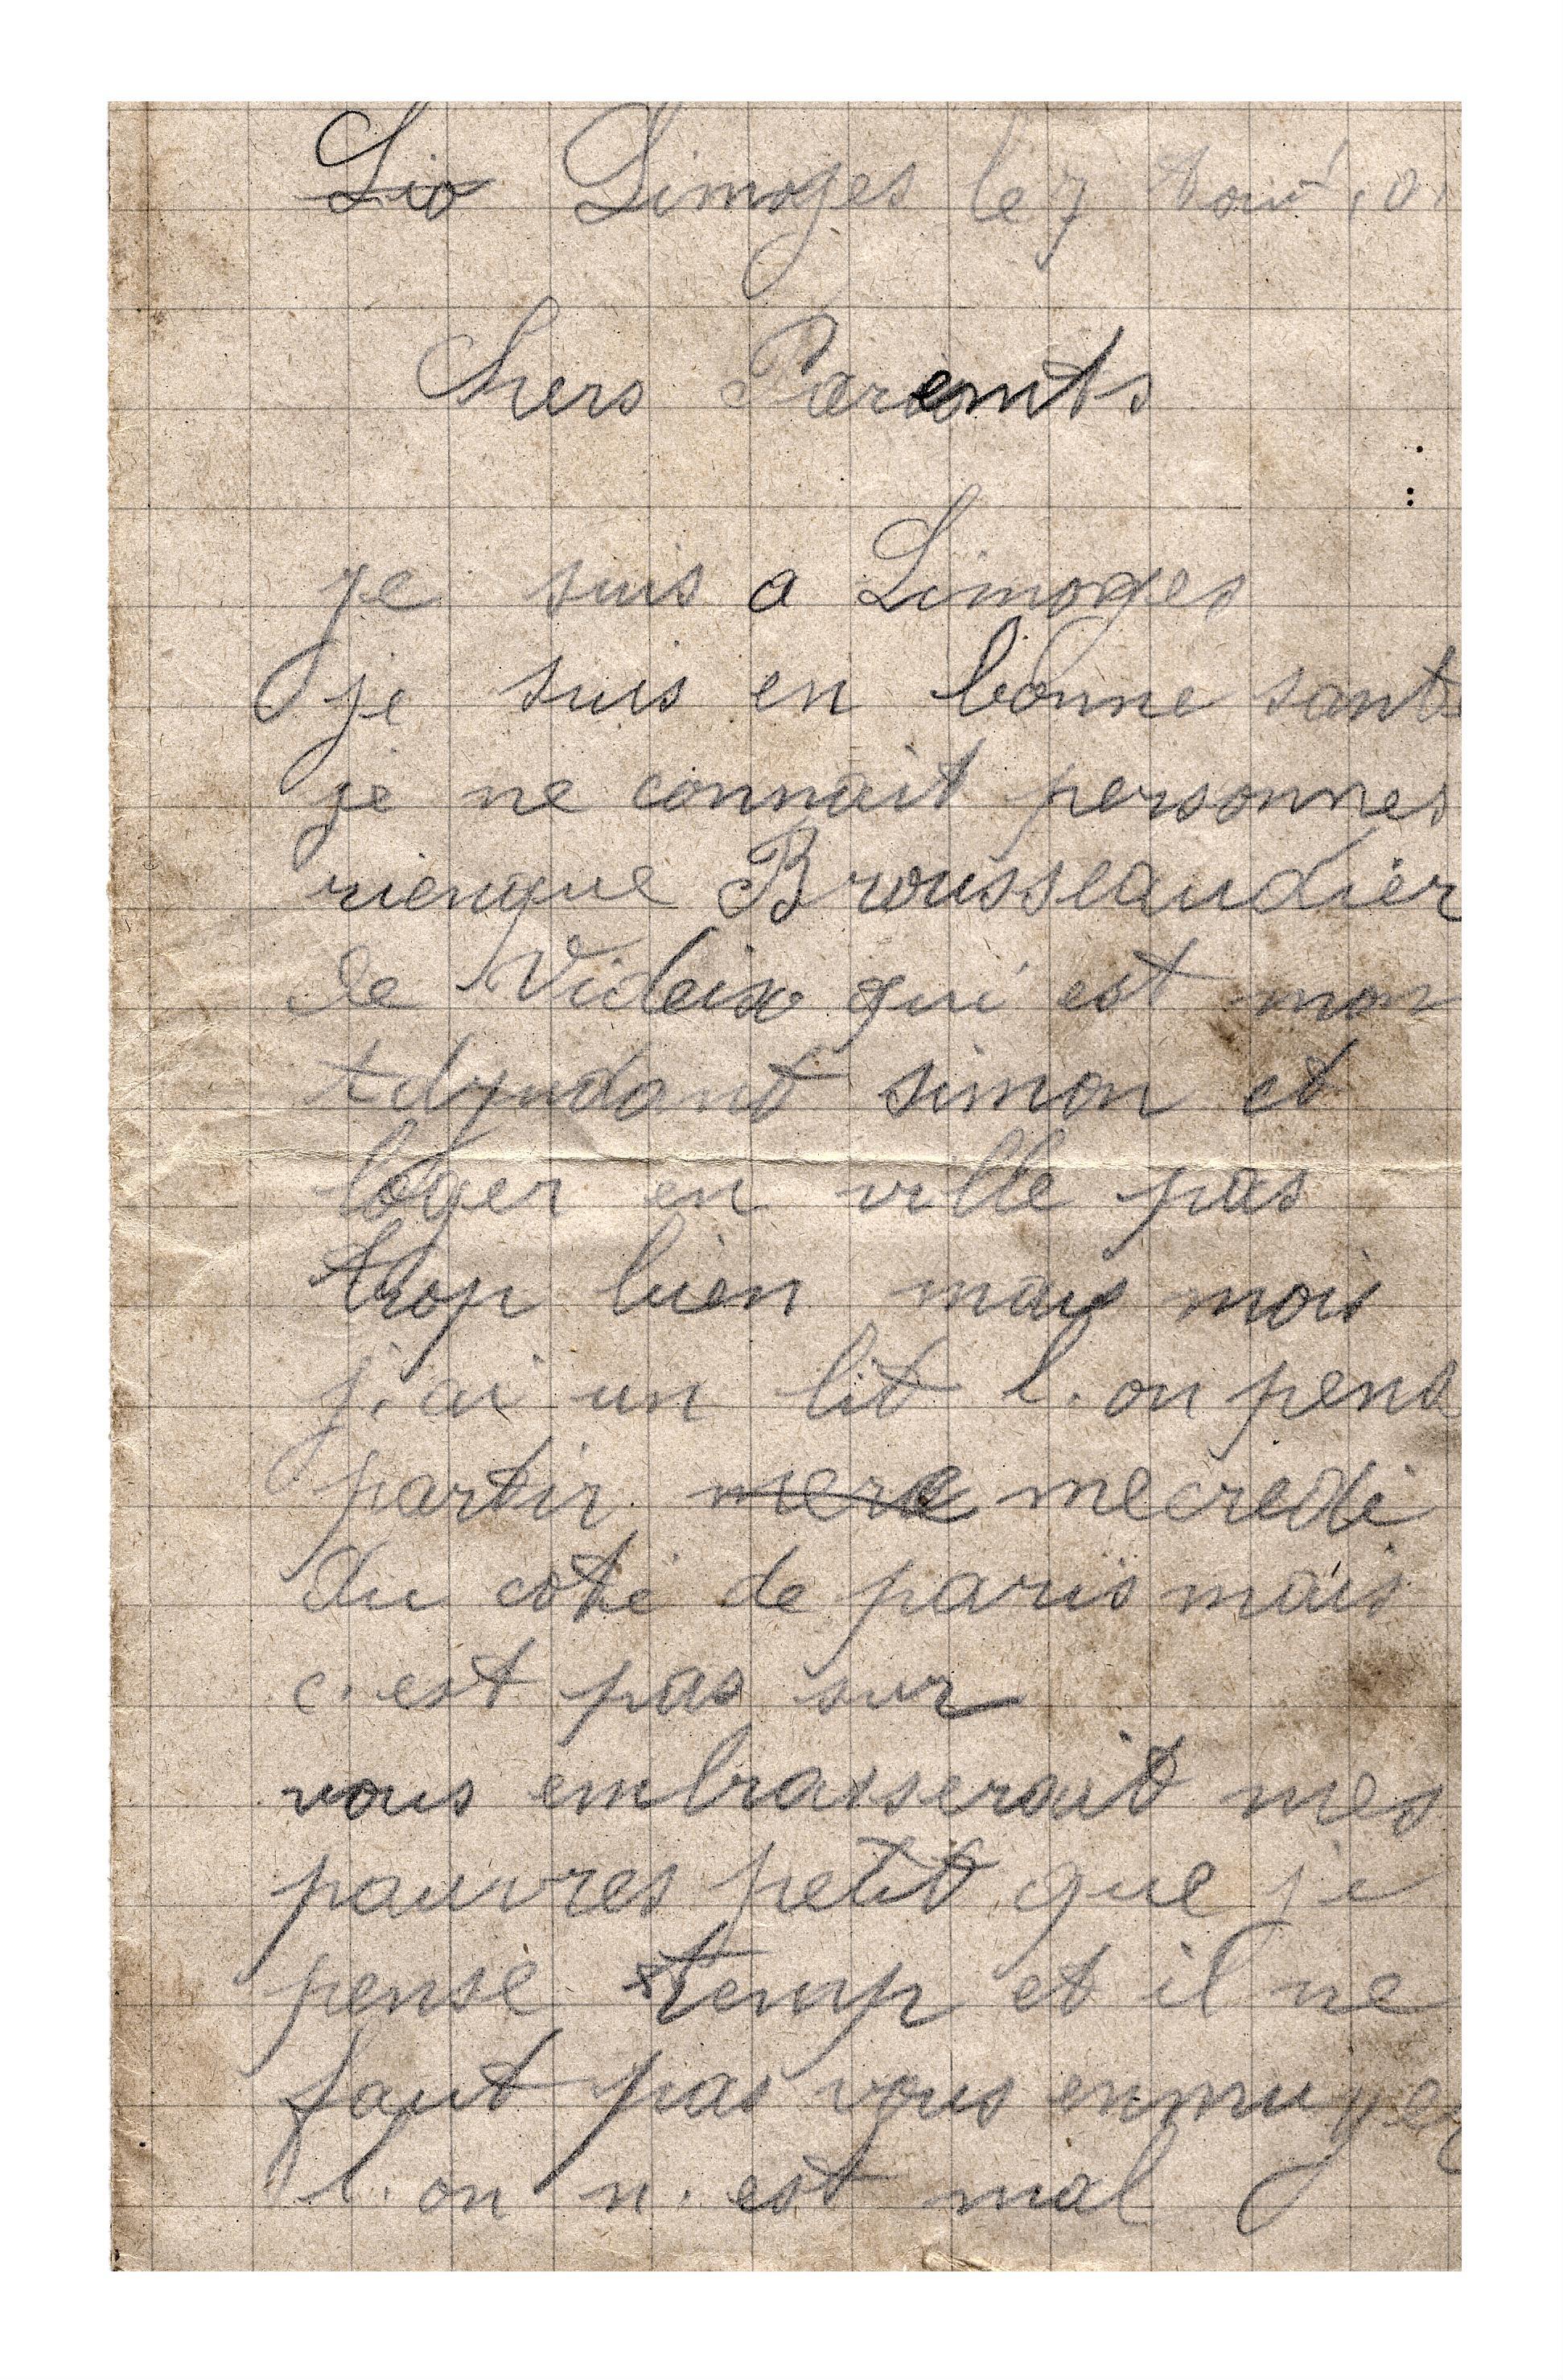 Lio Limoges le 7 Aout
Chers Parents
je suis a Limoges
je suis en bonne santé
je ne connait personnes
rienque Brousseaudier
de Videix qui est mon
Adjudant simon et
loger en ville pas
trop bien mais mois
j'ai un lit l'on pense
partir mere mecredi
du coté de paris mais
c'est pas sur
vous embrasserait mes
pauvres petit que je
pense temp et il ne
faut pas vous ennuyer
l'on n'est mal